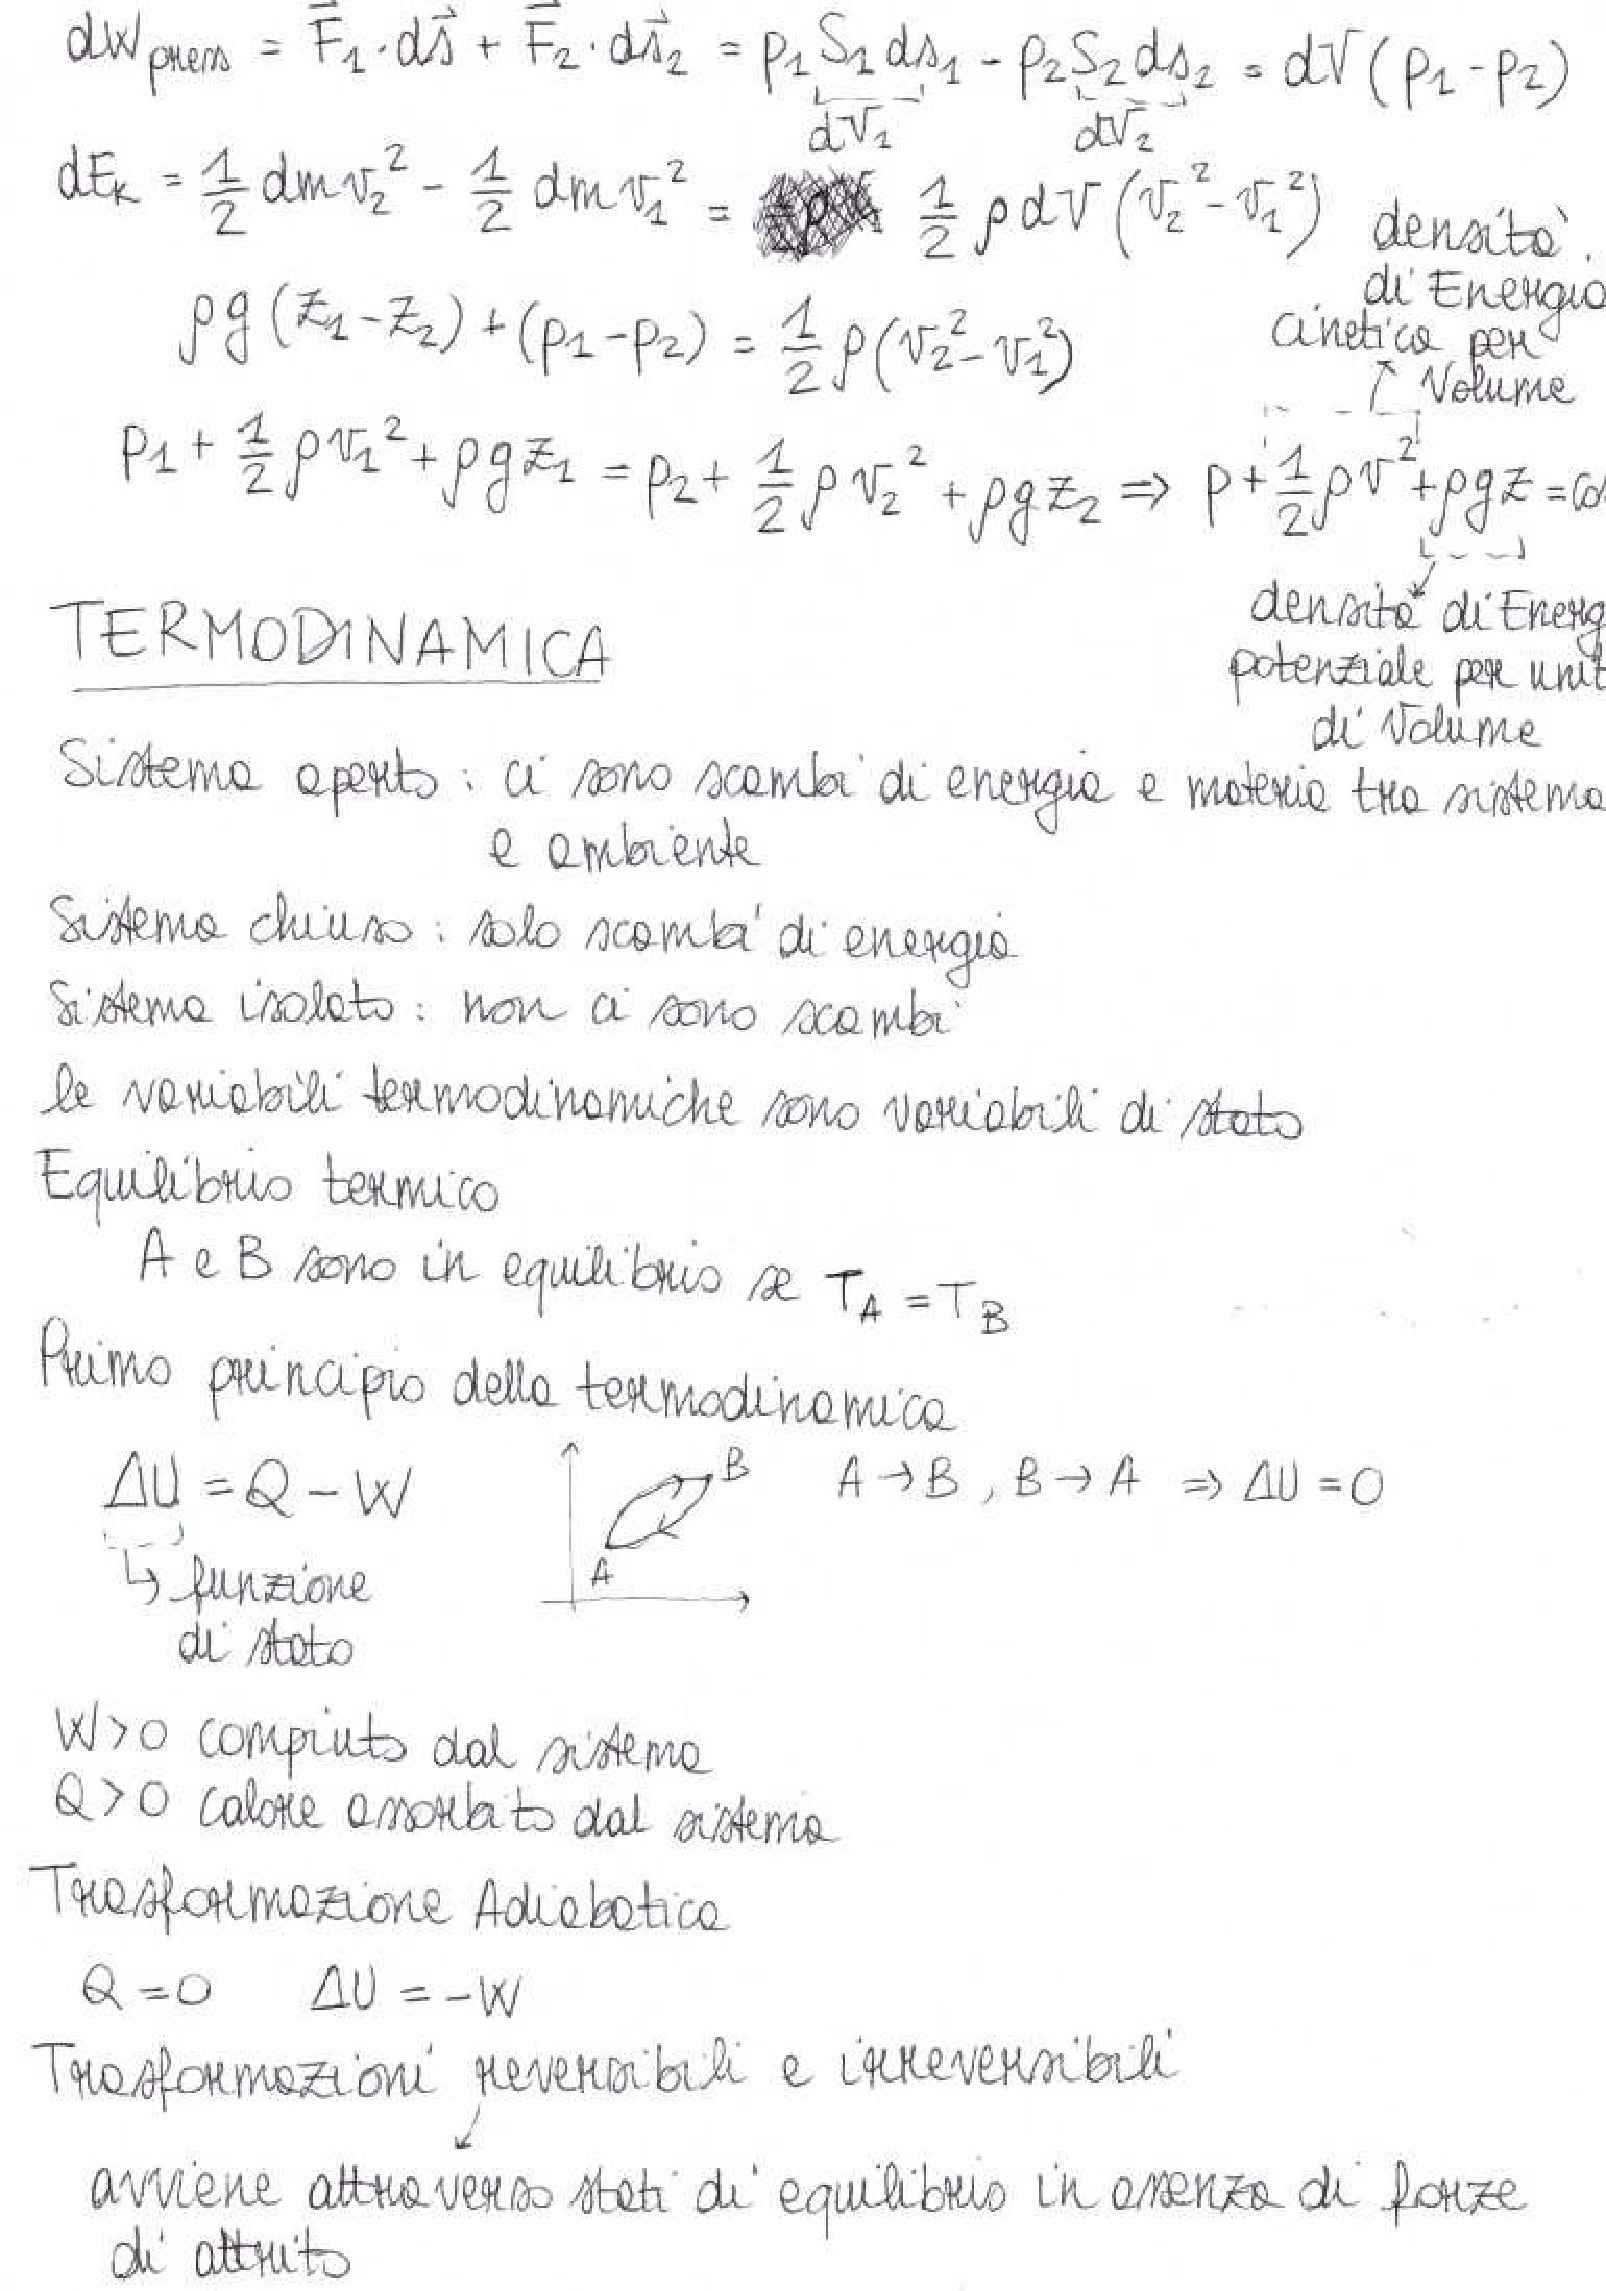 dW press = F⃗1 · ds⃗ + F⃗2 · ds⃗2 = p1 S1 ds1 - p2 S2 ds2 = dV (p1 - p2)
dV1 dV2
dEk = 1/2 dm v2² - 1/2 dm v1² = 1/2 ρ dV (v2² - v1²)
ρg (z1 - z2) + (p1 - p2) = 1/2 ρ (v2² - v1²)
densità
di Energia
cinetica per
Volume
p1 + 1/2 ρ v1² + ρ g z1 = p2 + 1/2 ρ v2² + ρ g z2 ⇒ p + 1/2 ρ v² + ρ g z = co
densità di Energ
potenziale per unit
di Volume
TERMODINAMICA
Sistema aperto : ci sono scambi di energia e materia tra sistema
e ambiente
Sistema chiuso : solo scambi di energia
Sistema isolato : non ci sono scambi
le variabili termodinamiche sono variabili di stato
Equilibrio termico
A e B sono in equilibrio se TA = TB
Primo principio della termodinamica
ΔU = Q - W
↳ funzione
di stato
B
A
A → B , B → A ⇒ ΔU = 0
W > 0 compiuto dal sistema
Q > 0 calore assorbito dal sistema
Trasformazione Adiabatica
Q = 0 ΔU = - W
Trasformazioni reversibili e irreversibili
avviene attraverso stati di equilibrio in assenza di forze
di attrito